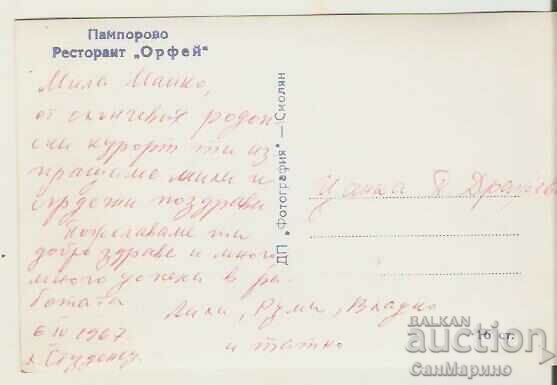 Пампорово
Ресторант „Орфей"
Мила Майко,
от слънчевия родоп
ски курорт ти из
пращаме мили и
сърдечни поздрави
Пожелаваме ти
добро здраве и много
много успехи в ра
ботата
Лили, Руми, Владко
и татко
6 IV 1967
ДП „Фотография" — Смолян
Цанка
16 ст.
BALKAN
auction
СанМарино